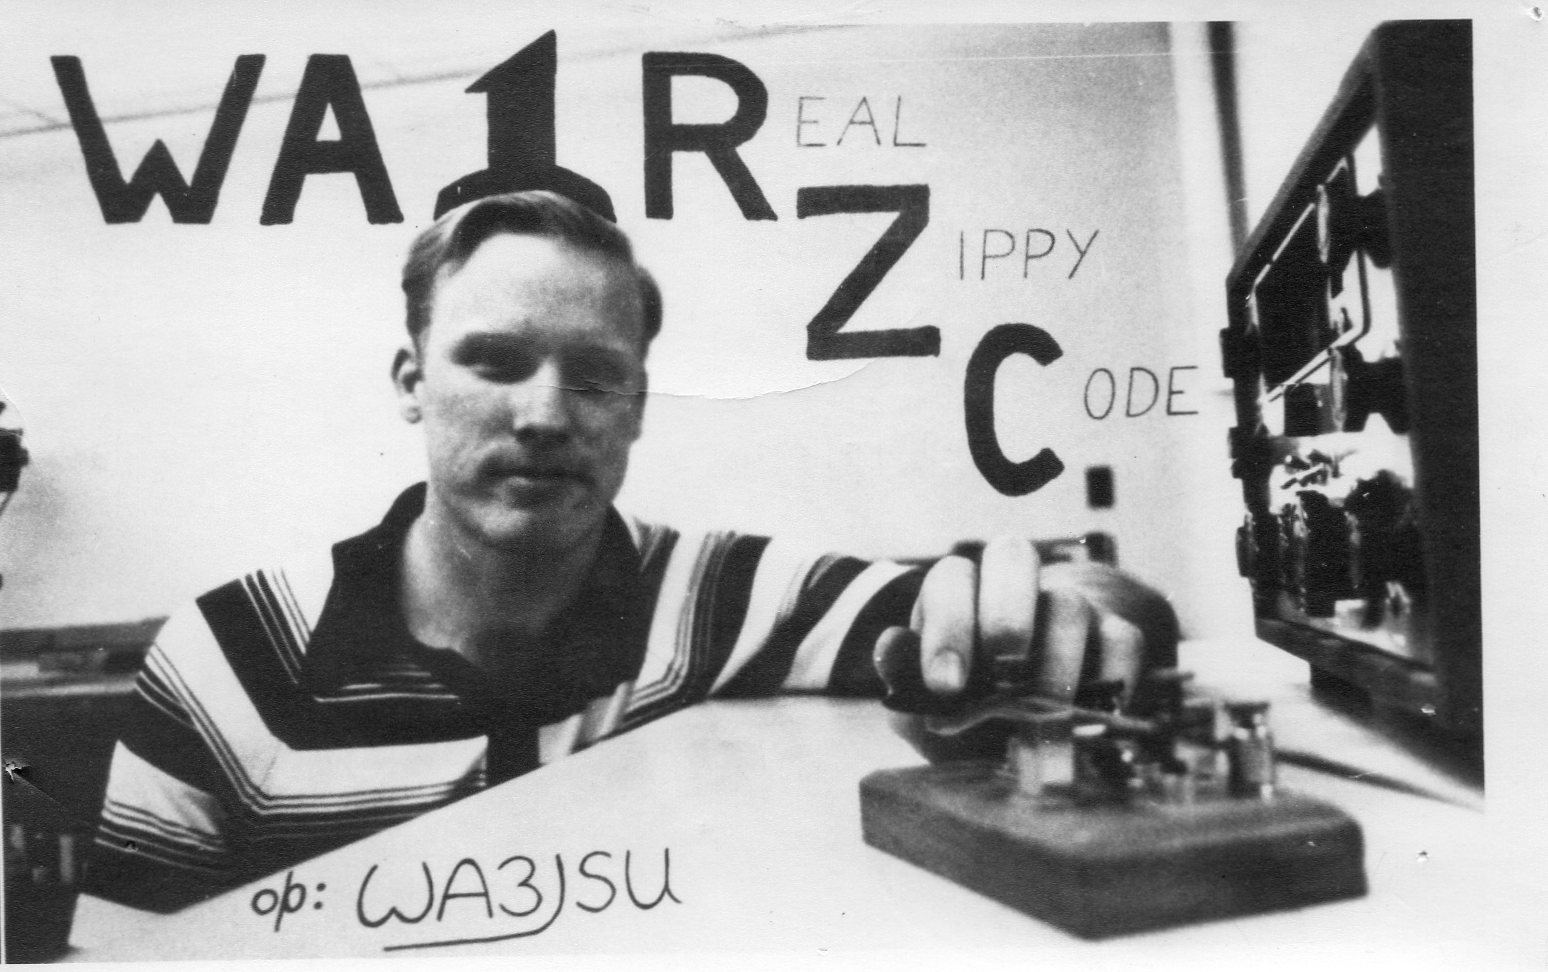 WA1REAL
ZIPPY
CODE
op: WA3JSU